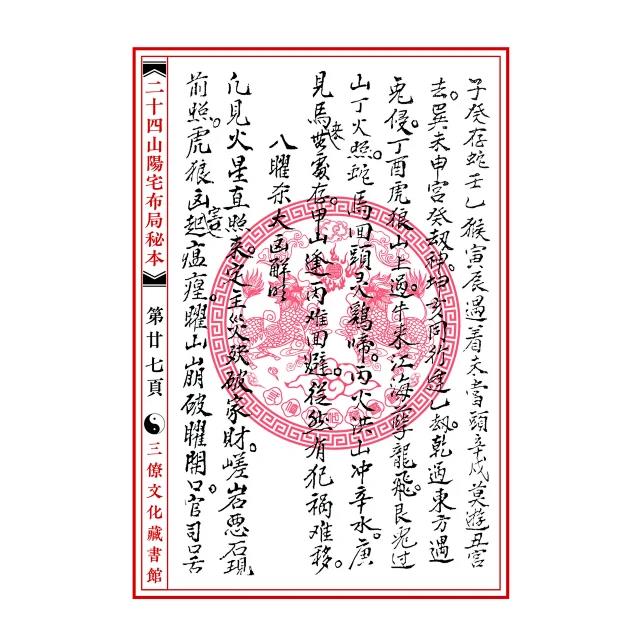 子癸存蛇壬乙猴寅辰遇着未當頭辛戌莫遊丑宮
去。巽未申宮癸劫神坤亥同行逢乙劫。乾酉東方遇
兎侵。丁酉虎狼山上過牛来江海孽龍飛。艮兎过
山丁火照。蛇馬回頭見鷄啼。丙火洪山冲辛水。庚
見馬無處存。甲山逢丙难回避。從然有犯禍难移。
八曜杀大凶解明
凡見火星直照来。定主災殃破家財。嵯岩恶石現
前照。虎狼凶起瘟瘟。曜山崩破曜開口官司口舌
二十四山陽宅布局秘本
第廿七頁
三僚文化藏書館